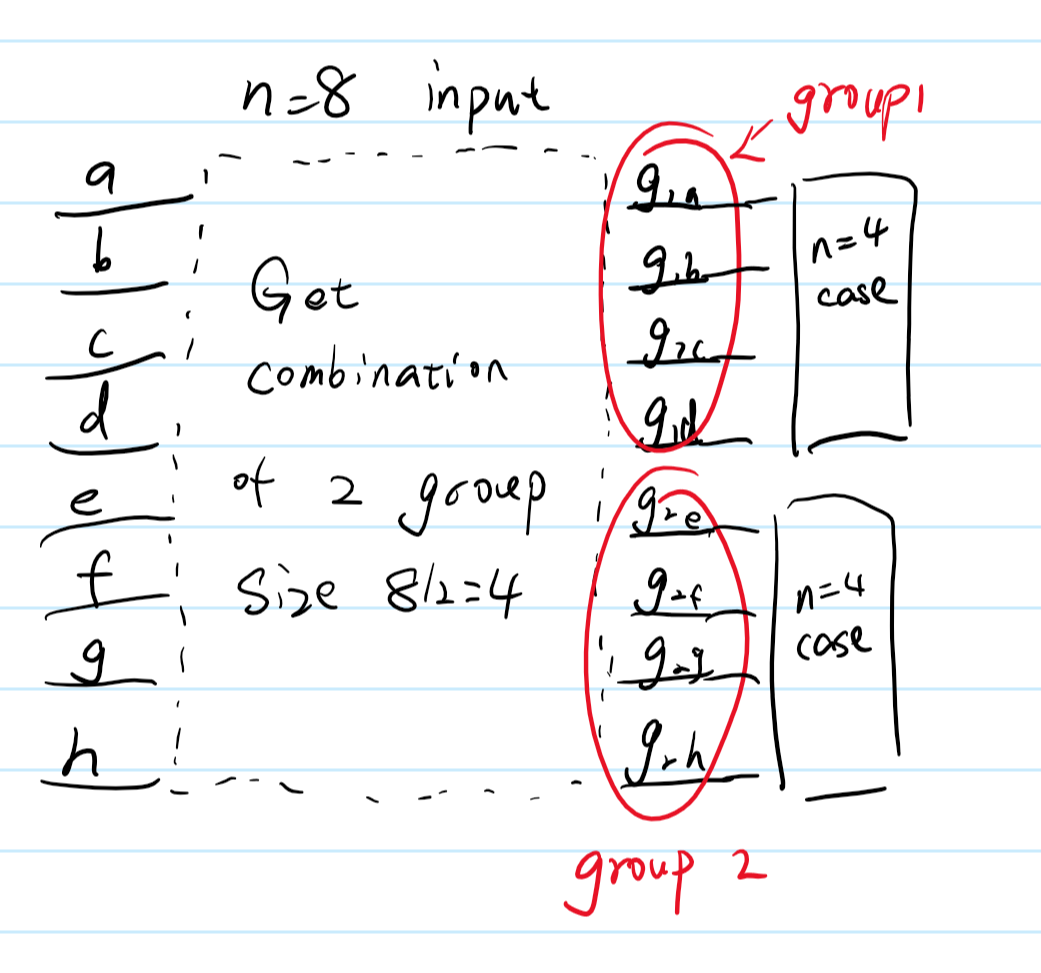 n=8 input
group1
a
b
c
d
e
f
g
h
Get
combination
of 2 group
Size 8/2=4
g1a
g1b
g1c
g1d
n=4
case
g2e
g2f
g2g
g2h
n=4
case
group 2